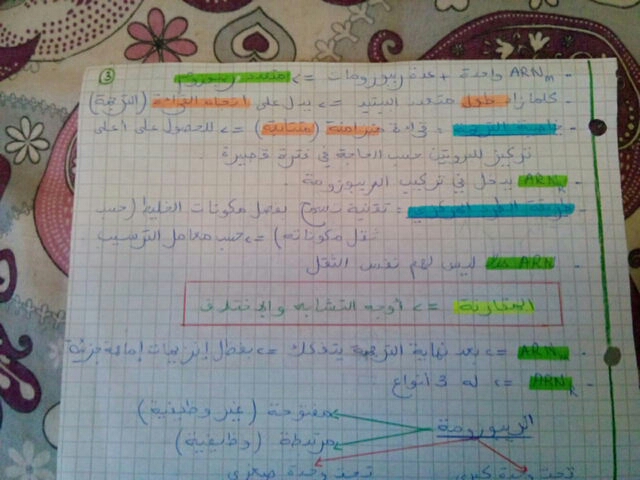 3
- ARNm واحدة + عدة ريبوزومات => متعدد ريبوزوم
- كلما زاد طول متعدد الببتيد => يدل على اتجاه القراءة (الترجمة)
- خاصية الترجمة : قراءة متزامنة (متتالية) => للحصول على أعلى
تركيز للبروتين حسب الحاجة في فترة قصيرة
- ARNr يدخل في تركيب الريبوزومة
- طريقة الطرد المركزي : تقنية تسمح بفصل مكونات الخليط (حسب
ثقل مكوناته) => حسب معامل الترسيب
- ARN ليس لهم نفس الثقل
المقارنة => أوجه التشابه والإختلاف
- ARNm => بعد نهاية الترجمة يتفكك => بفضل إنزيمات إماهة جزئية
- ARNr => له 3 أنواع
مفتوحة (غير وظيفية)
الريبوزومة
مرتبطة (وظيفية)
تحت وحدة كبرى تحت وحدة صغرى